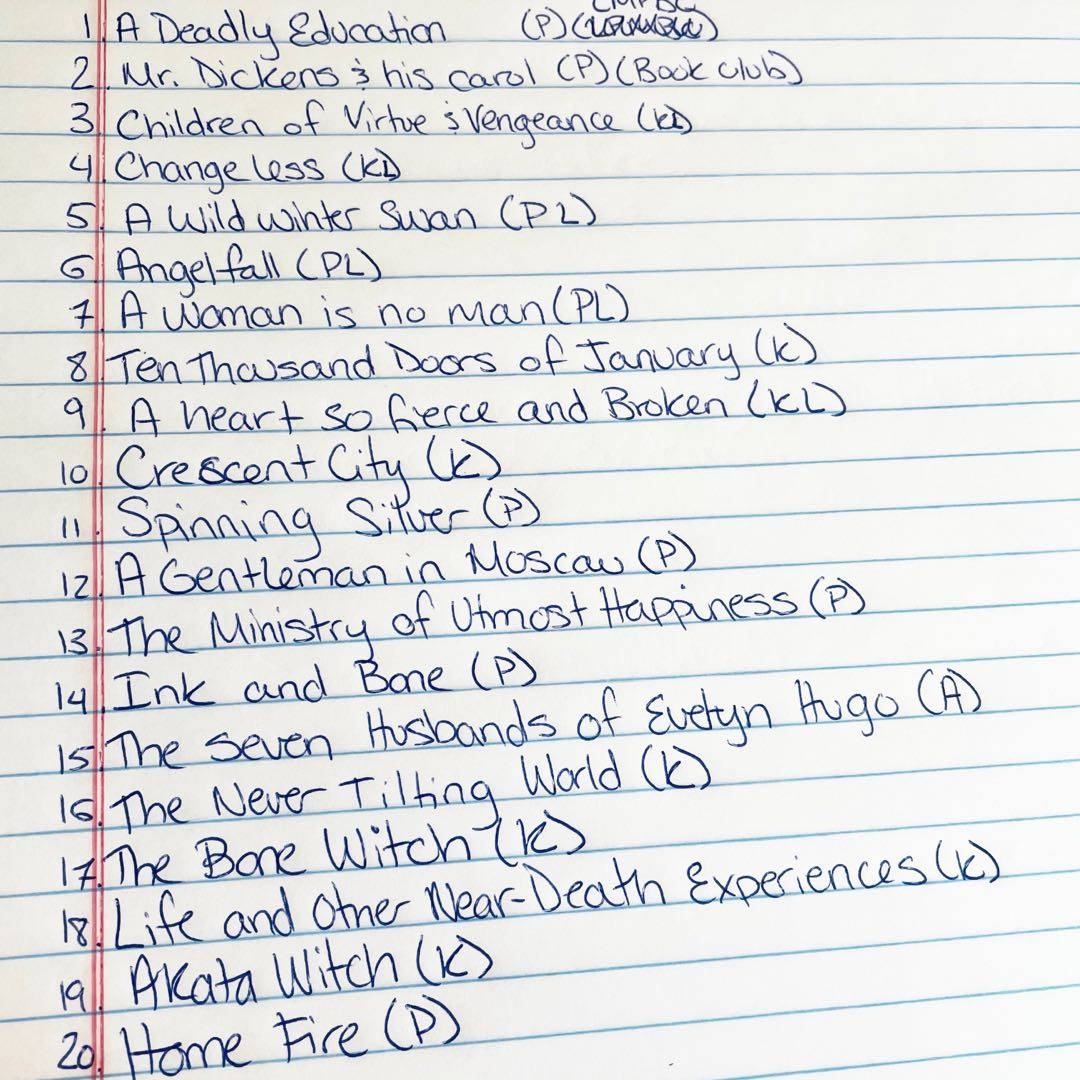 1. A Deadly Education (P)
2. Mr. Dickens & his carol (P) (Book Club)
3. Children of Virtue & Vengeance (KL)
4. Changeless (KL)
5. A Wild Winter Swan (PL)
6. Angelfall (PL)
7. A Woman is no man (PL)
8. Ten Thousand Doors of January (K)
9. A heart so fierce and Broken (KL)
10. Crescent City (K)
11. Spinning Silver (P)
12. A Gentleman in Moscow (P)
13. The Ministry of Utmost Happiness (P)
14. Ink and Bone (P)
15. The Seven Husbands of Evelyn Hugo (A)
16. The Never Tilting World (K)
17. The Bone Witch (K)
18. Life and Other Near-Death Experiences (K)
19. Akata Witch (K)
20. Home Fire (P)